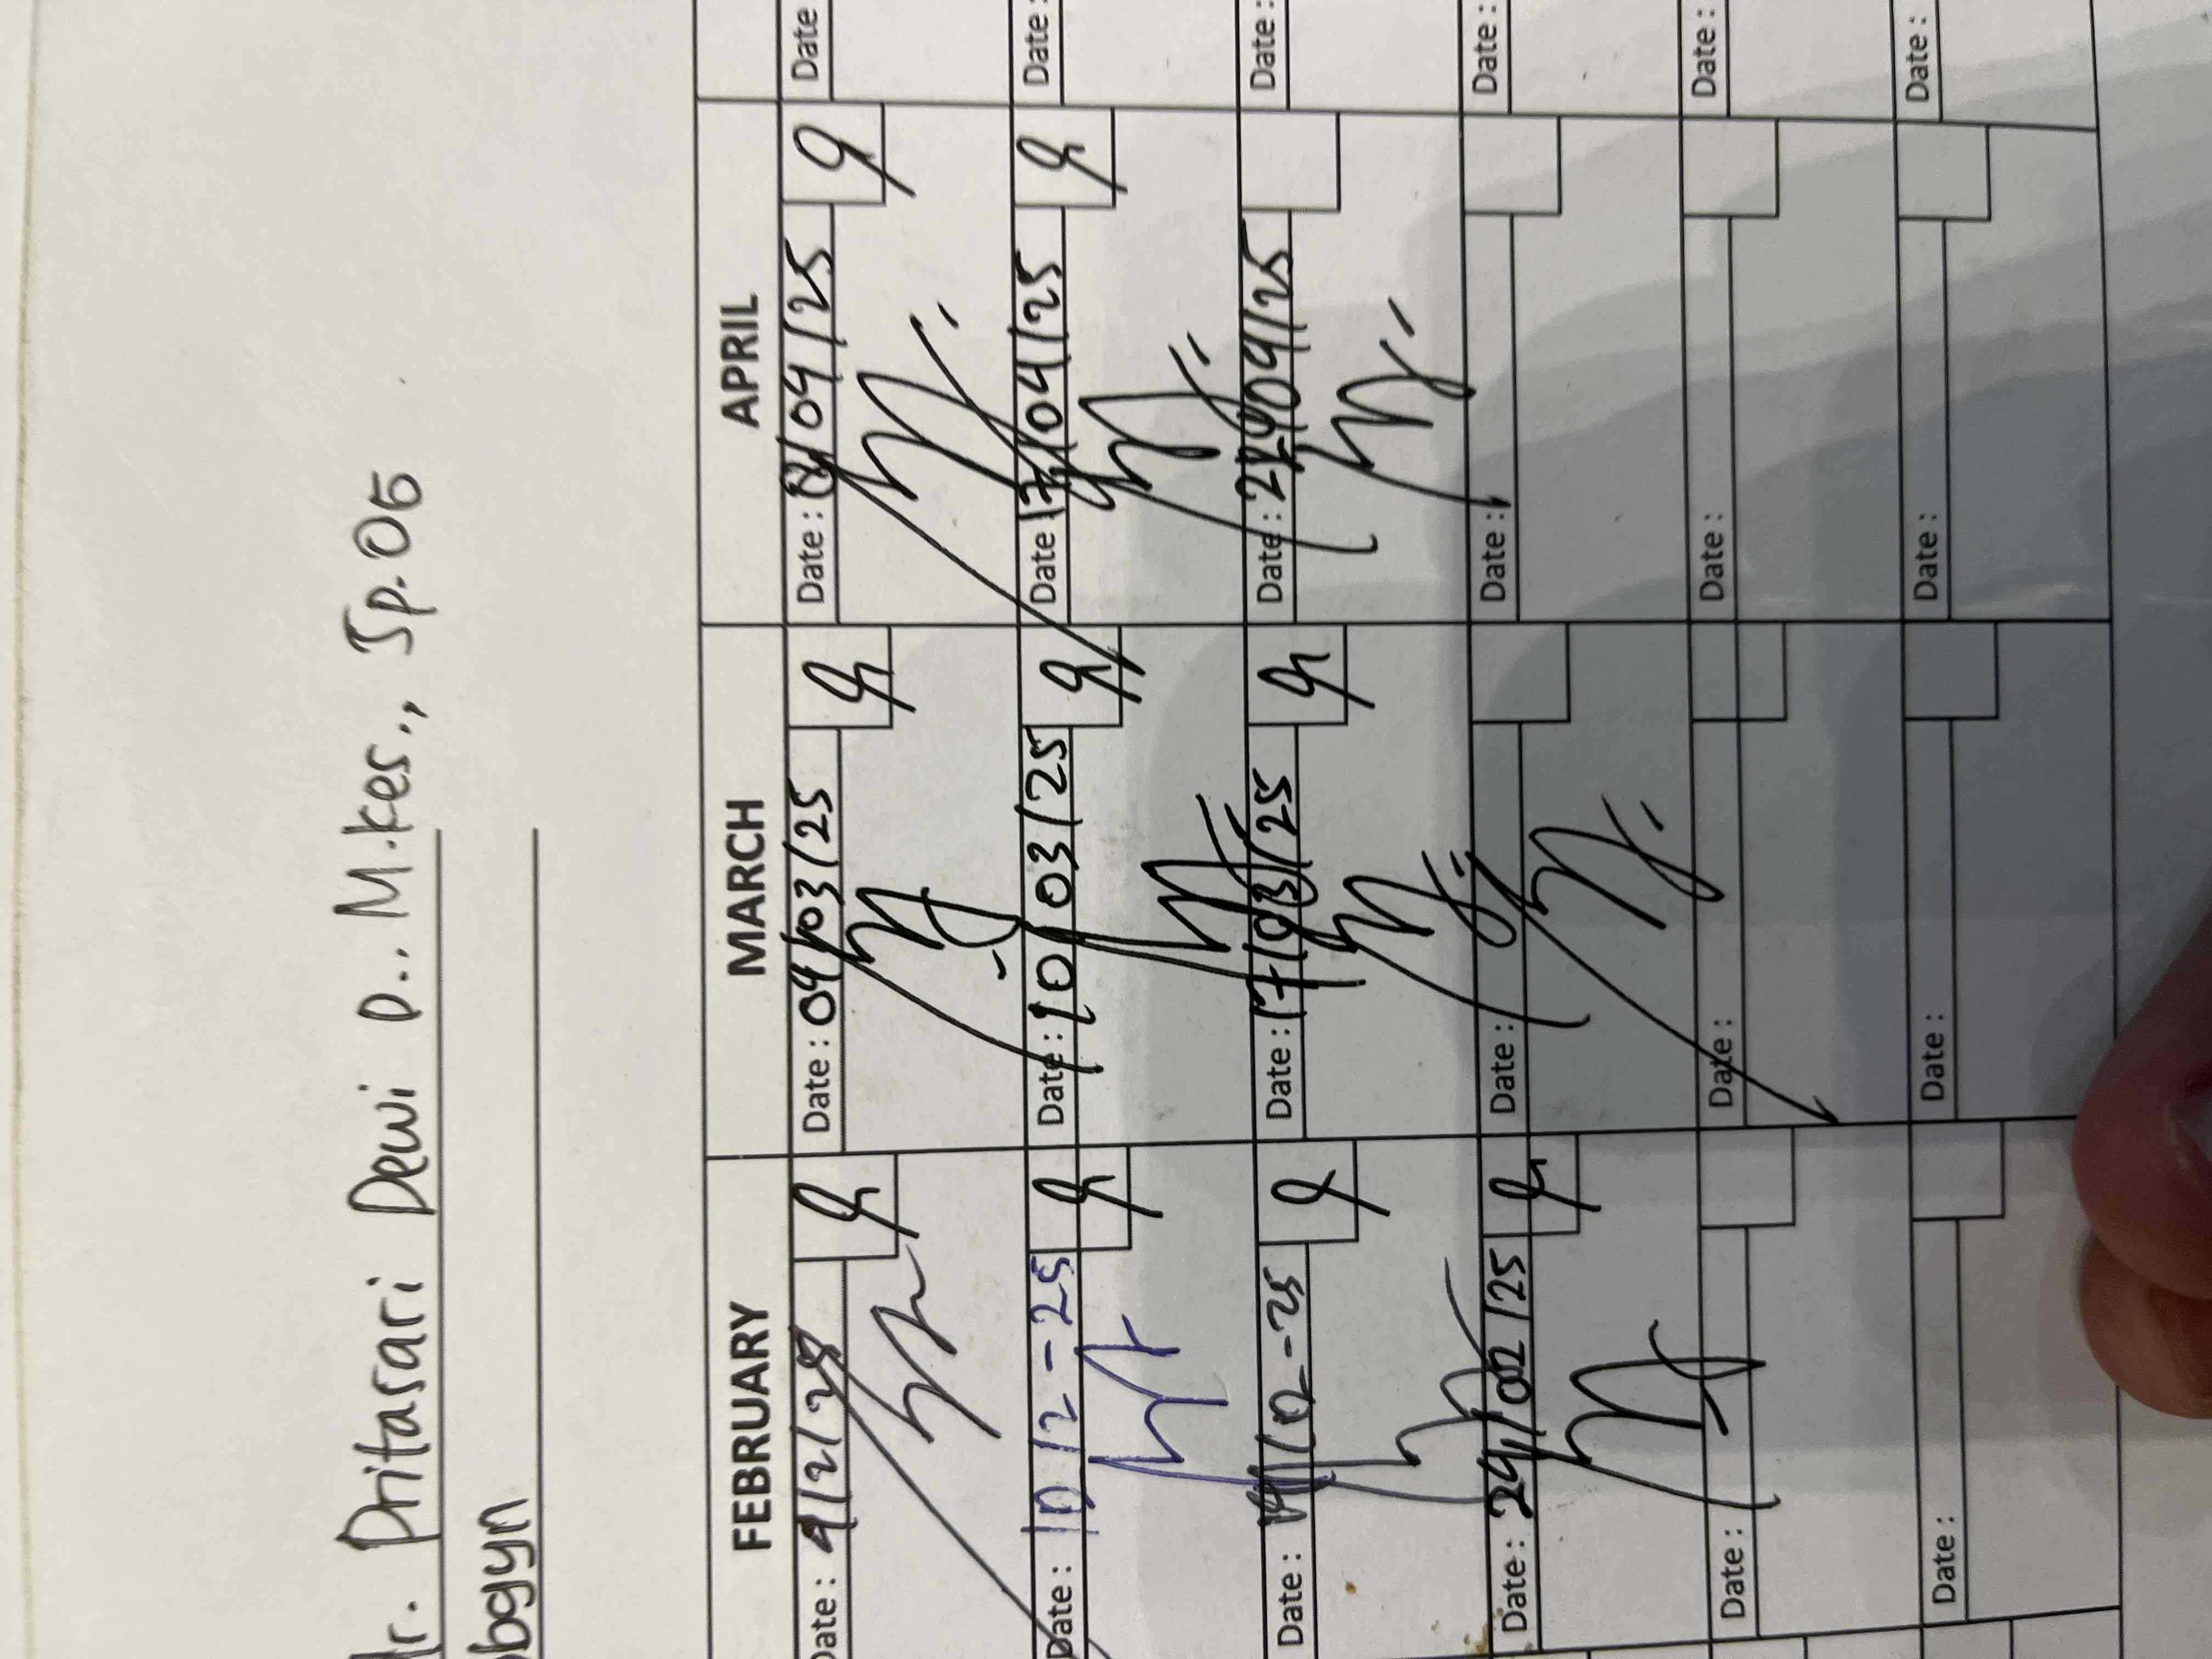 dr. Pritasari Dewi D., M.kes., Sp.OG
obgyn
FEBRUARY MARCH APRIL
Date : 4/2/25 Date : 04/03/25 Date : 8/04/25 Date
Date : 10/2-25 Date : 10/03/25 Date 17/04/25 Date :
Date : /02-25 Date : 17/03/25 Date : 22/04/25 Date :
Date : 24/02/25 Date : Date : Date :
Date : Date : Date : Date :
Date : Date : Date : Date :